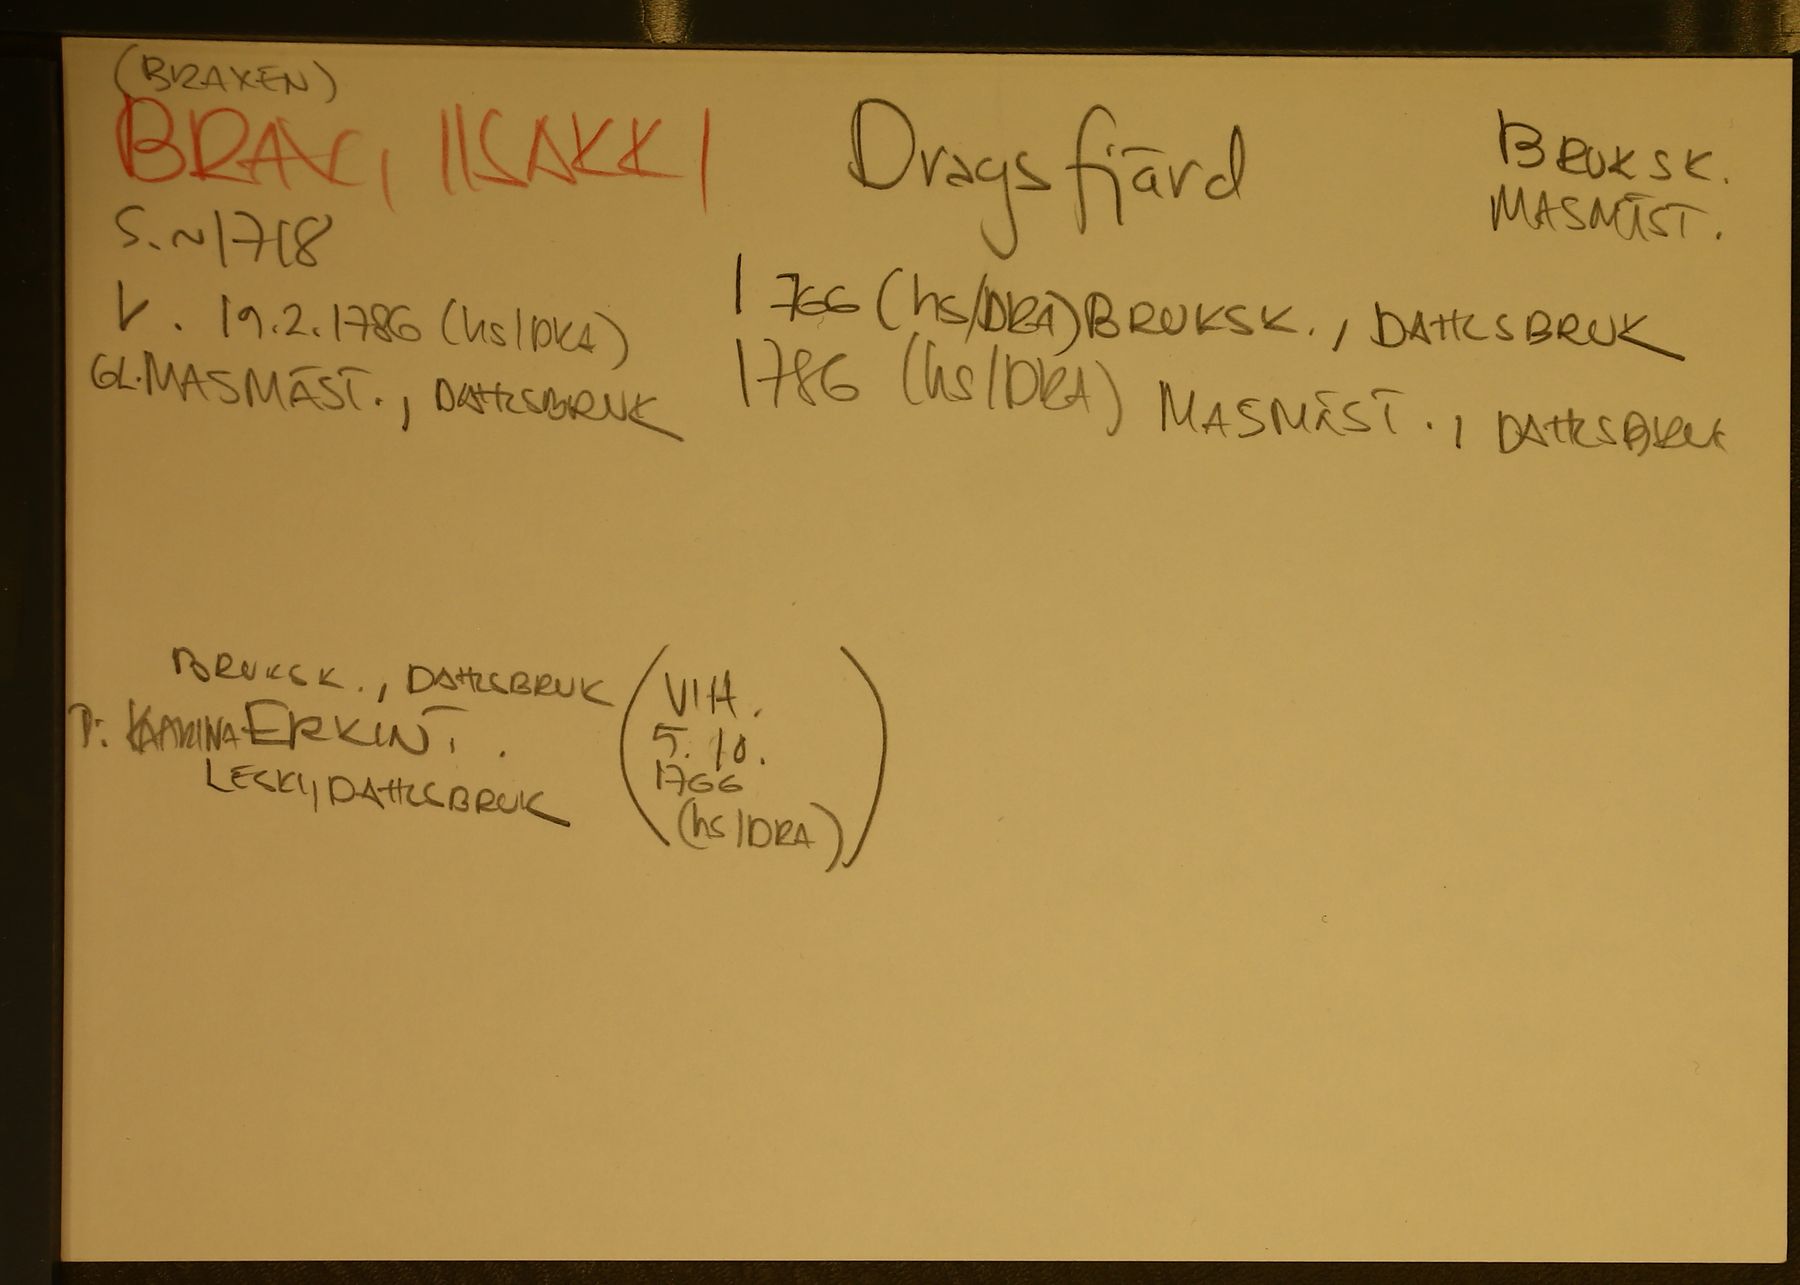 (BRAXEN)
BRAX, IISAKKI
Dragsfjärd
BRUKSK.
MASMÄST.
S. ~1718
K. 19.2.1786 (hs/DRA)
GL. MASMÄST., DAHLSBRUK
1766 (hs/DRA) BRUKSK., DAHLSBRUK
1786 (hs/DRA) MASMÄST., DAHLSBRUK
BRUKSK., DAHLSBRUK
P: KAARINA ERKINT.
LESKI, DAHLSBRUK
(VIH.
5.10.
1766
(hs/DRA))